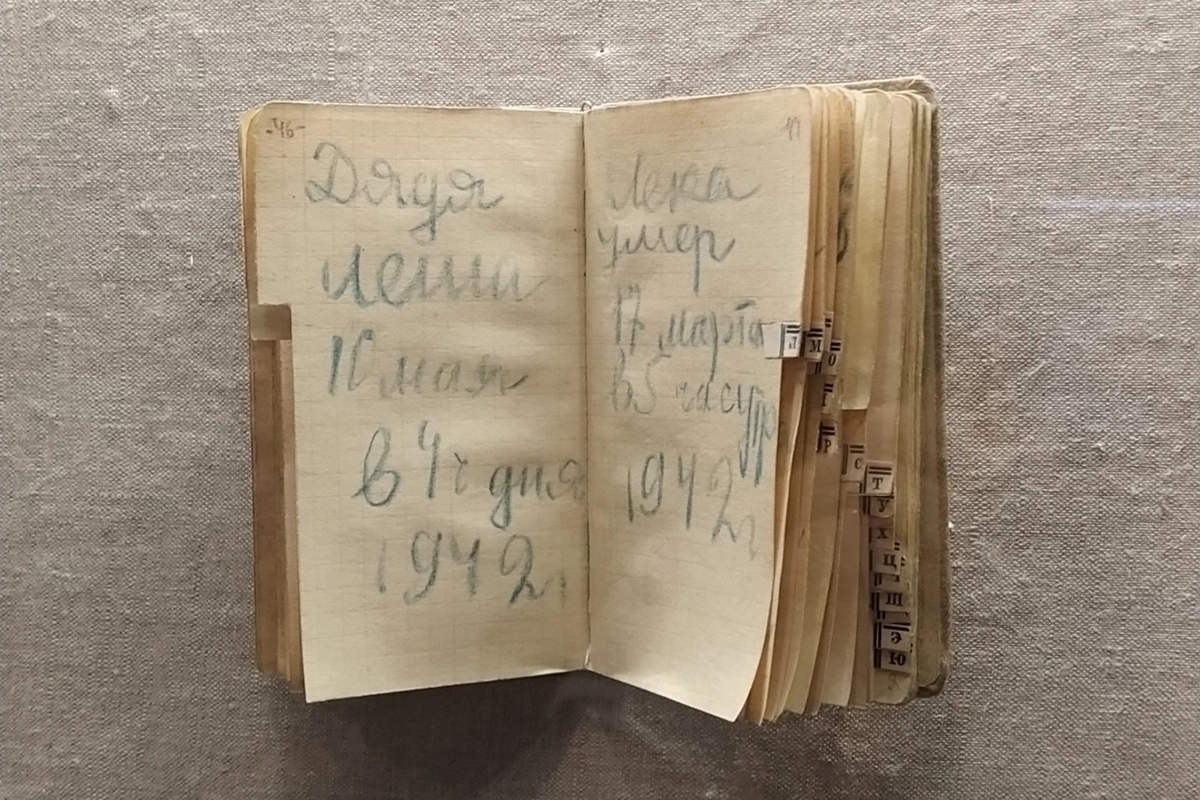 -46-
Дядя
Леша
10 мая
в 4 ч дня
1942 г
47
Лека
умер
17 марта
в 5 часутр
1942 г
Л
М
О
Р
С
Т
У
Х
Ц
Ш
Э
Ю